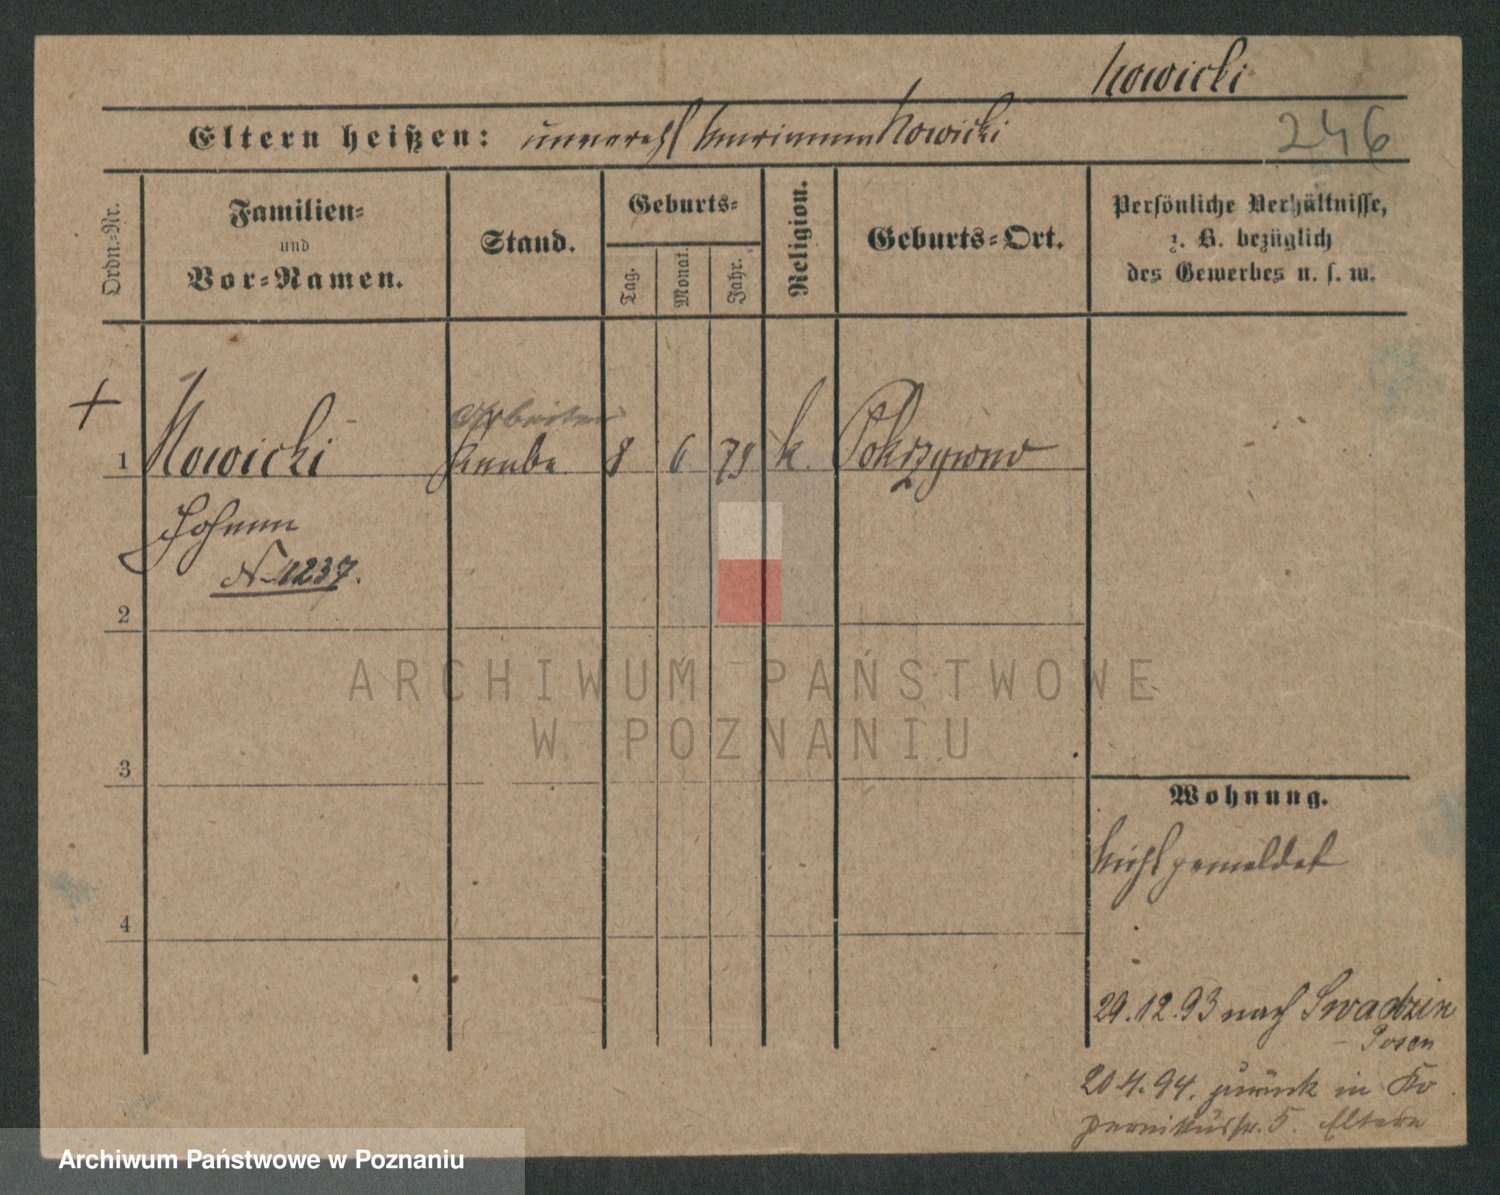 Nowicki
Eltern heißen: unverehl Marianna Nowicki
246
Ordn.-Nr.
Familien-
und
Vor-Namen.
Stand.
Geburts-
Tag.
Monat.
Jahr.
Religion.
Geburts-Ort.
Persönliche Verhältnisse,
z. B. bezüglich
des Gewerbes u. s. w.
Arbeiter
1 Nowicki Knabe 8 6 79 k. Pokrzywno
Johann
N 1237.
2
3
4
Wohnung.
Nicht gemeldet
29.12.93 nach Swadzin
- Posen
20.4.94. zurück in Ko
pernikusstr. 5. Eltern
ARCHIWUM PAŃSTWOWE
W POZNANIU
Archiwum Państwowe w Poznaniu